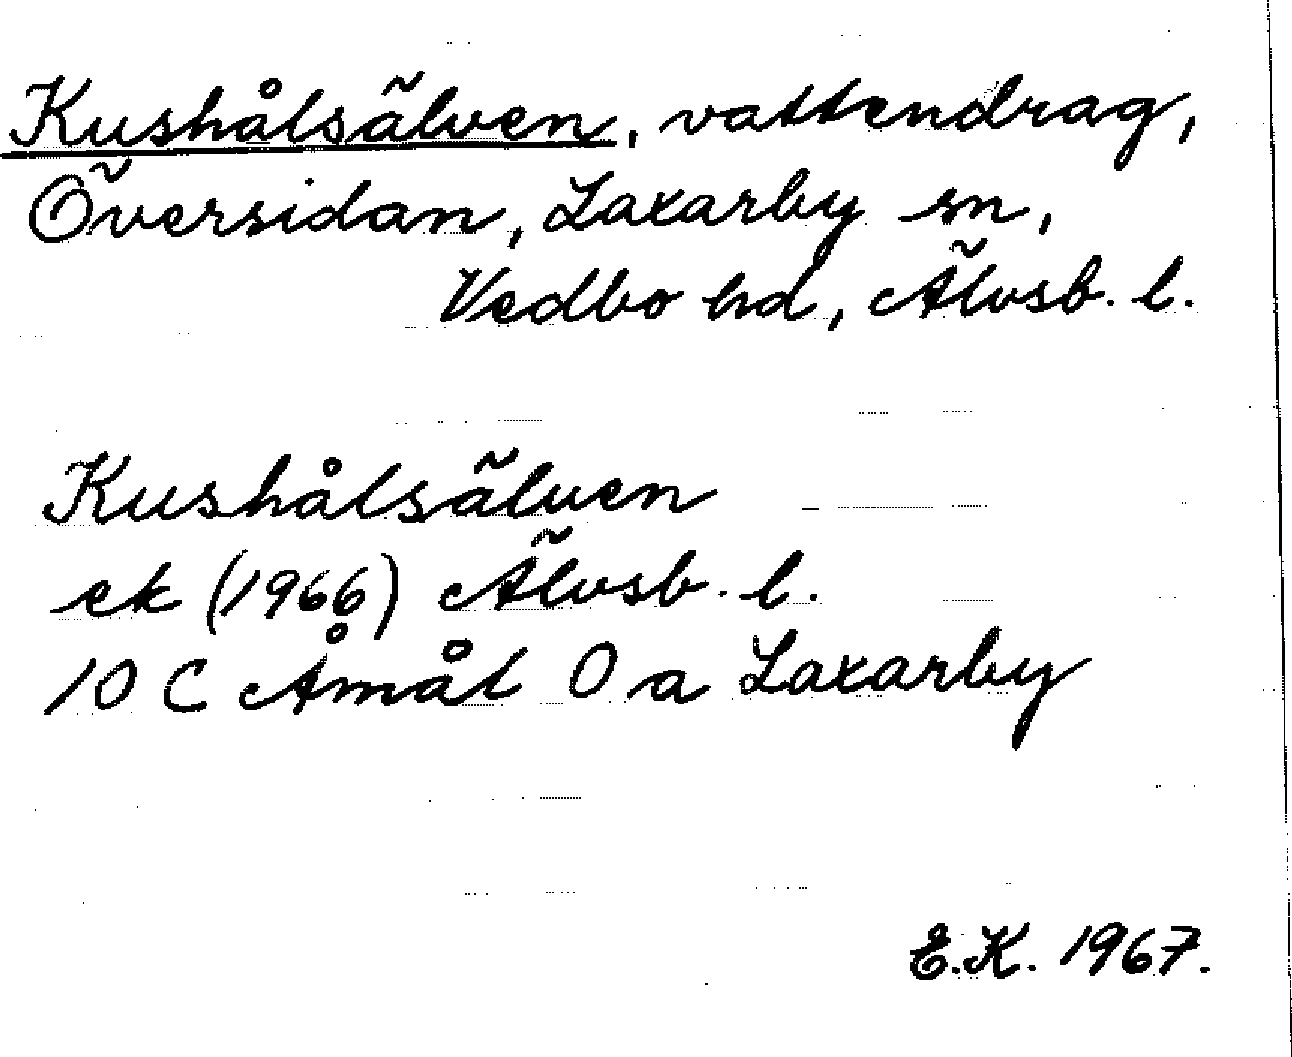 Kushålsälven, vattendrag,
Översidan, Laxarby sn,
Vedbo hd, Älvsb. l.
Kushålsälven
ek (1966) Älvsb. l.
10 C Åmål O a Laxarby
E.K. 1967.